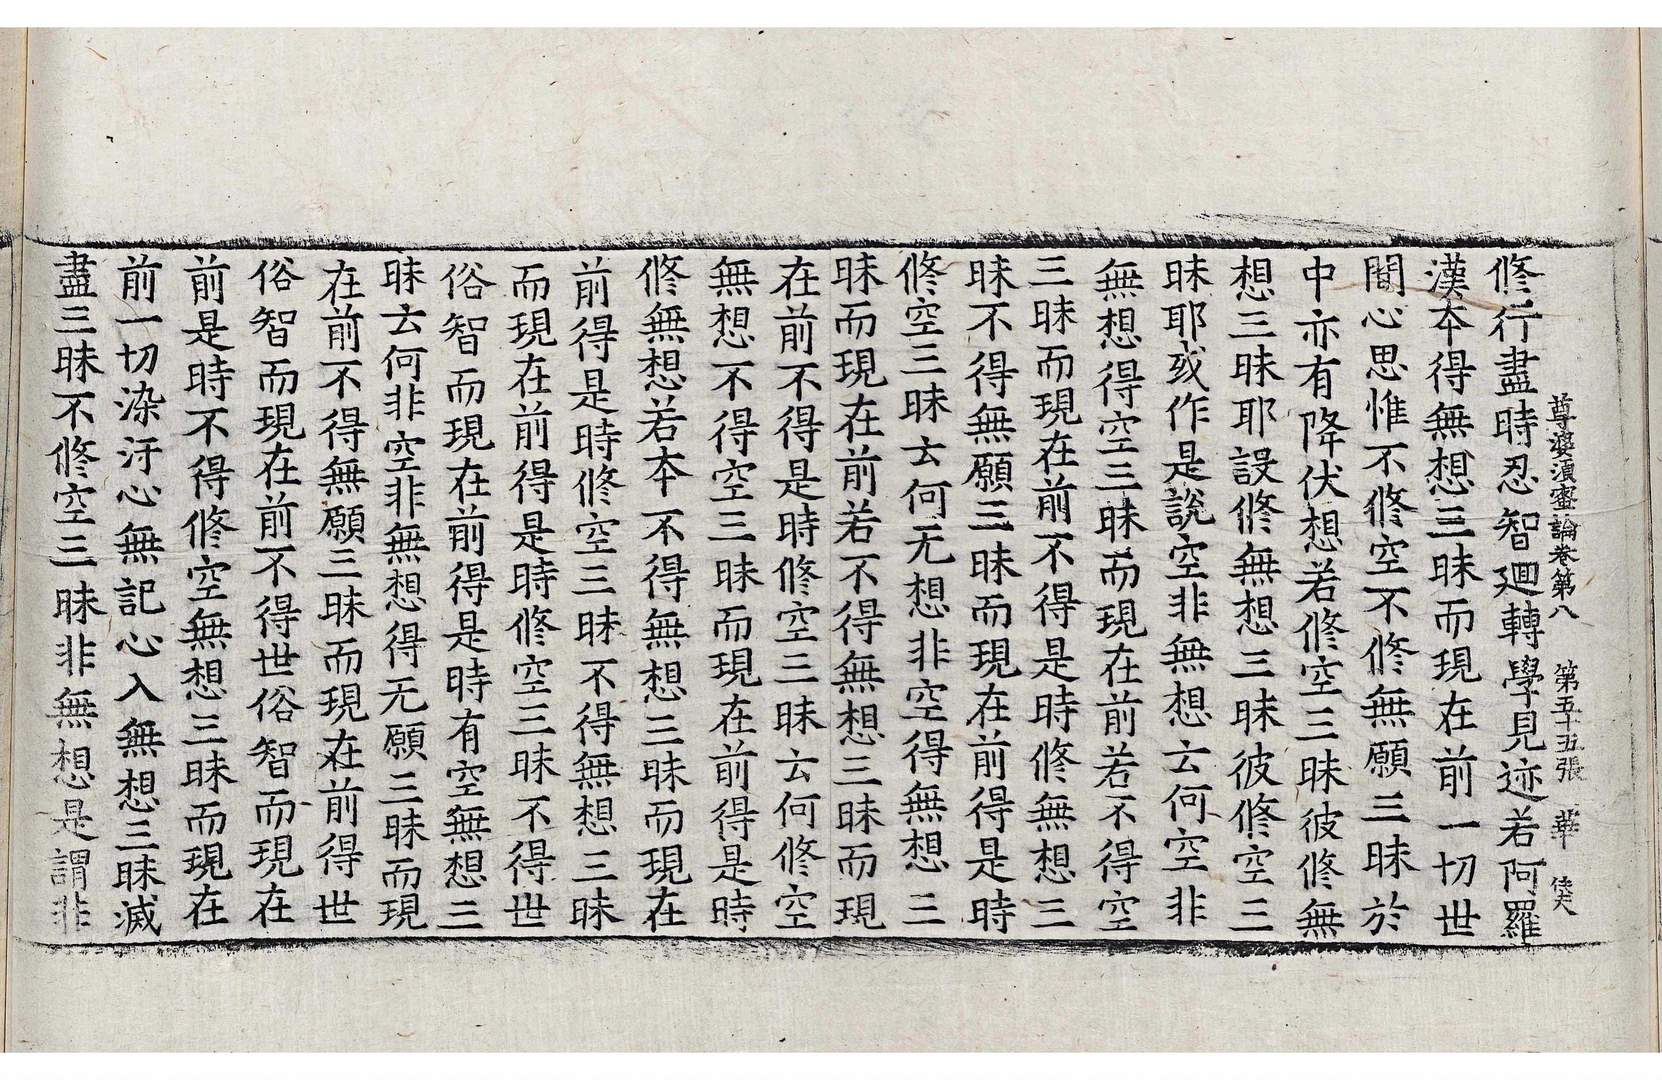 尊婆湏蜜論卷第八 第五十五張 華
修行盡時忍智廽轉學見迹若阿羅
漢本得無想三昧而現在前一切世
間心思惟不修空不修無願三昧於
中亦有降伏想若修空三昧彼修無
想三昧耶設修無想三昧彼修空三
昧耶或作是說空非無想云何空非
無想得空三昧而現在前若不得空
三昧而現在前不得是時修無想三
昧不得無願三昧而現在前得是時
修空三昧云何无想非空得無想三
昧而現在前若不得無想三昧而現
在前不得是時修空三昧云何修空
無想不得空三昧而現在前得是時
修無想若本不得無想三昧而現在
前得是時修空三昧不得無想三昧
而現在前得是時修空三昧不得世
俗智而現在前得是時有空無想三
昧云何非空非無想得无願三昧而現
在前不得無願三昧而現在前得世
俗智而現在前不得世俗智而現在
前是時不得修空無想三昧而現在
前一切染汙心無記心入無想三昧滅
盡三昧不修空三昧非無想是謂非